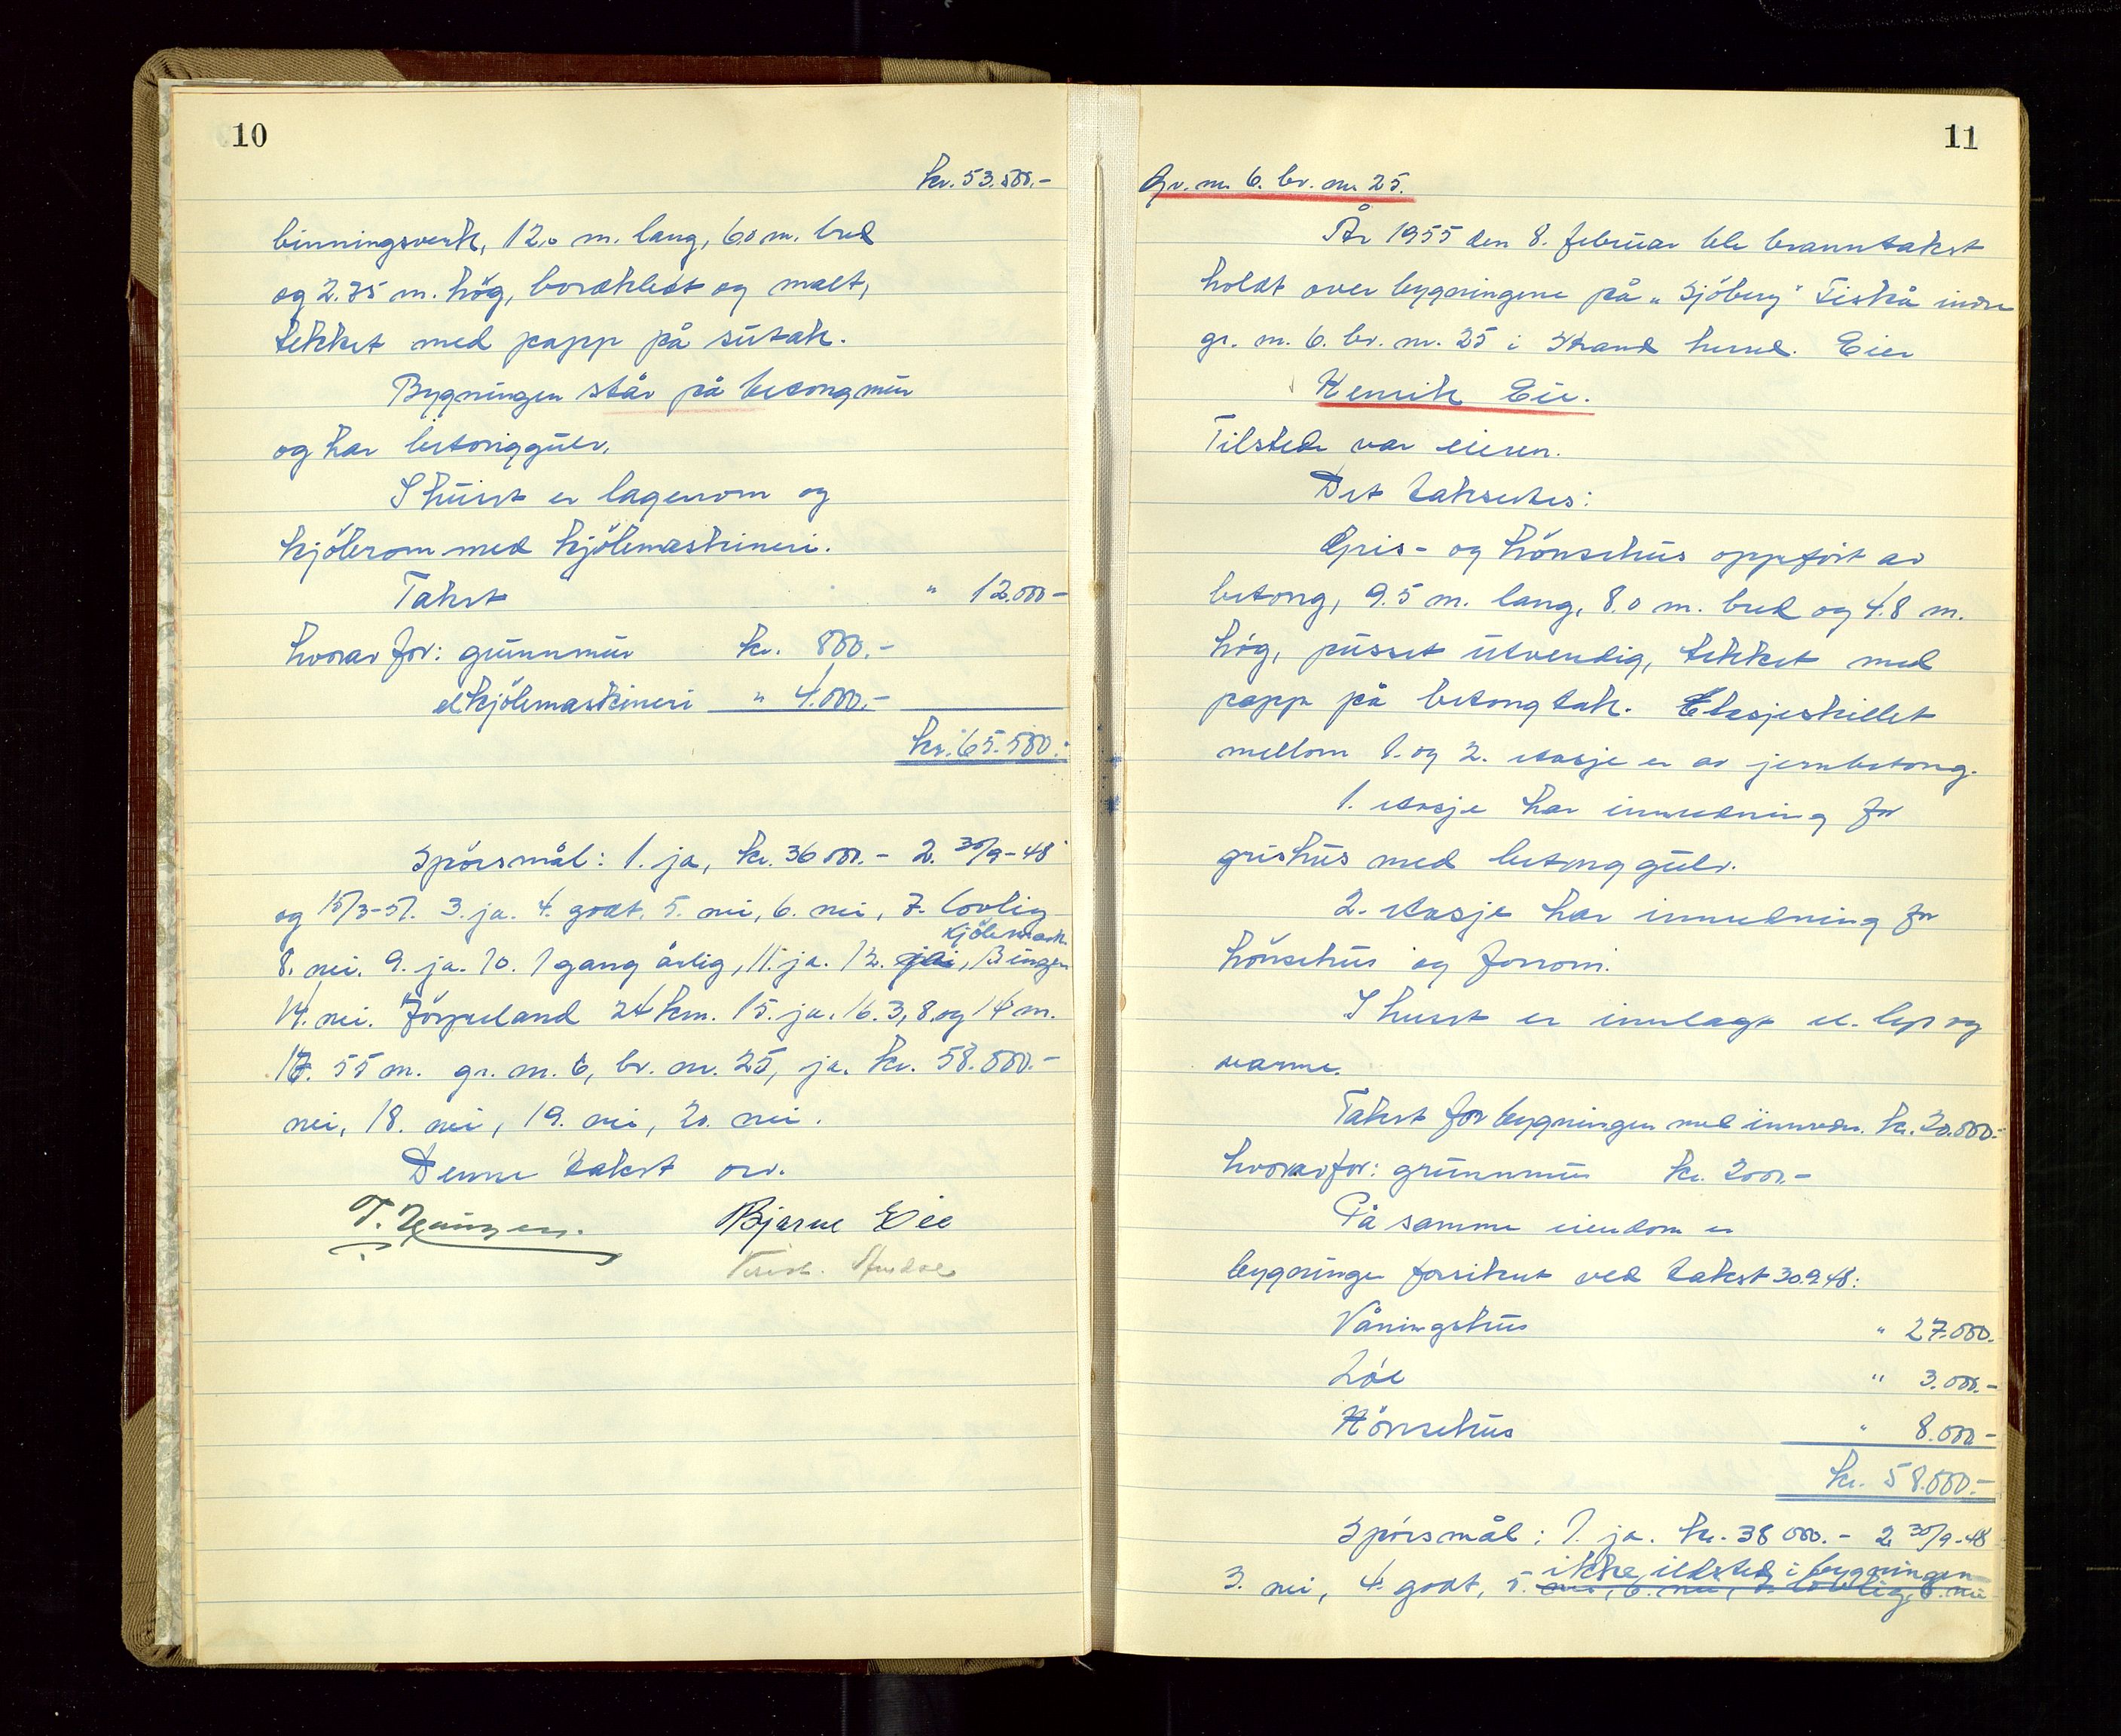 10
kr. 53.500.-
binningsverk, 12.0 m. lang, 6.0 m. bred
og 2.75 m. høg, bordkledt og malt,
tekket med papp på sutak.
Bygningen står på betongmur
og har betonggulv.
I huset er lagerrom og
kjølerom med kjølemaskineri.
Takst " 12.000-
hvorav for: grunnmur kr. 800.-
el kjølemaskineri " 4.000.-
kr. 65.500.-
Spørsmål: 1. ja, kr. 36000.- 2. 30/9-48
og 15/3-51. 3. ja. 4. godt, 5. nei, 6. nei, 7. lovlig
kjølemask.
8. nei. 9. ja. 10. 1 gang årlig, 11. ja. 12. 13 ingen
14. nei. Jørpeland 24 km. 15. ja. 16. 3, 8 og 14 m.
17. 55 m. gr. nr. 6, br. nr. 25, ja. kr. 58.000.-
nei, 18. nei, 19. nei, 20. nei.
Denne takst osv.
Bjarne Eie
11
Gr. nr. 6. br. nr. 25.
År 1955 den 8. februar ble branntakst
holdt over bygningene på "Sjøberg" Fiskå indre
gr. nr. 6. br. nr. 25 i Strand herred. Eier
Henrik Eie.
Tilstede var eieren.
Det takseres:
Gris- og hønsehus oppført av
betong, 9.5 m. lang, 8.0 m. bred og 4.8 m.
høg, pusset utvendig, tekket med
papp på betongtak. Etasjeskillet
mellom 1. og 2. etasje er av jernbetong.
1. etasje har innredning for
grishus med betonggulv.
2. etasje har innredning for
hønsehus og forrom.
I huset er innlagt el. lys og
varme.
Takst for bygningen med innredn. kr. 20.000.-
hvorav for: grunnmur kr. 2000.-
På samme eiendom er
bygninger forsikret ved takst 30.9.48:
Våningshus " 27.000.
Løe " 3.000.-
Hønsehus " 8.000-
kr. 58.000.-
Spørsmål: 1. ja. kr. 38000.- 2. 30/9-48
ikke ildsted i bygningen
3. nei, 4. godt, 5. nei, 6. nei, 7. lovlig, 8. nei